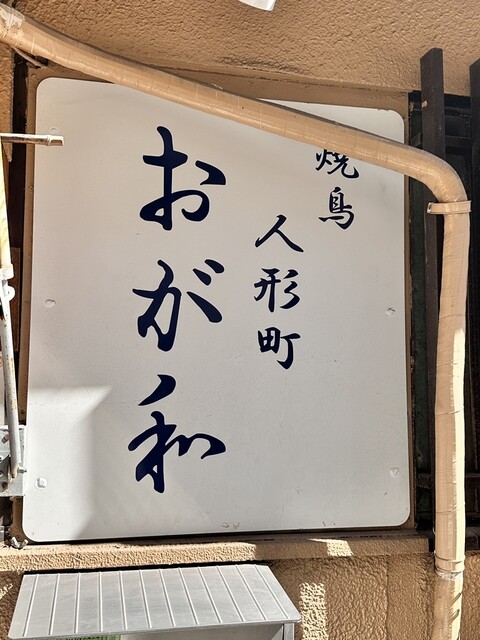 焼鳥
人形町
おが和